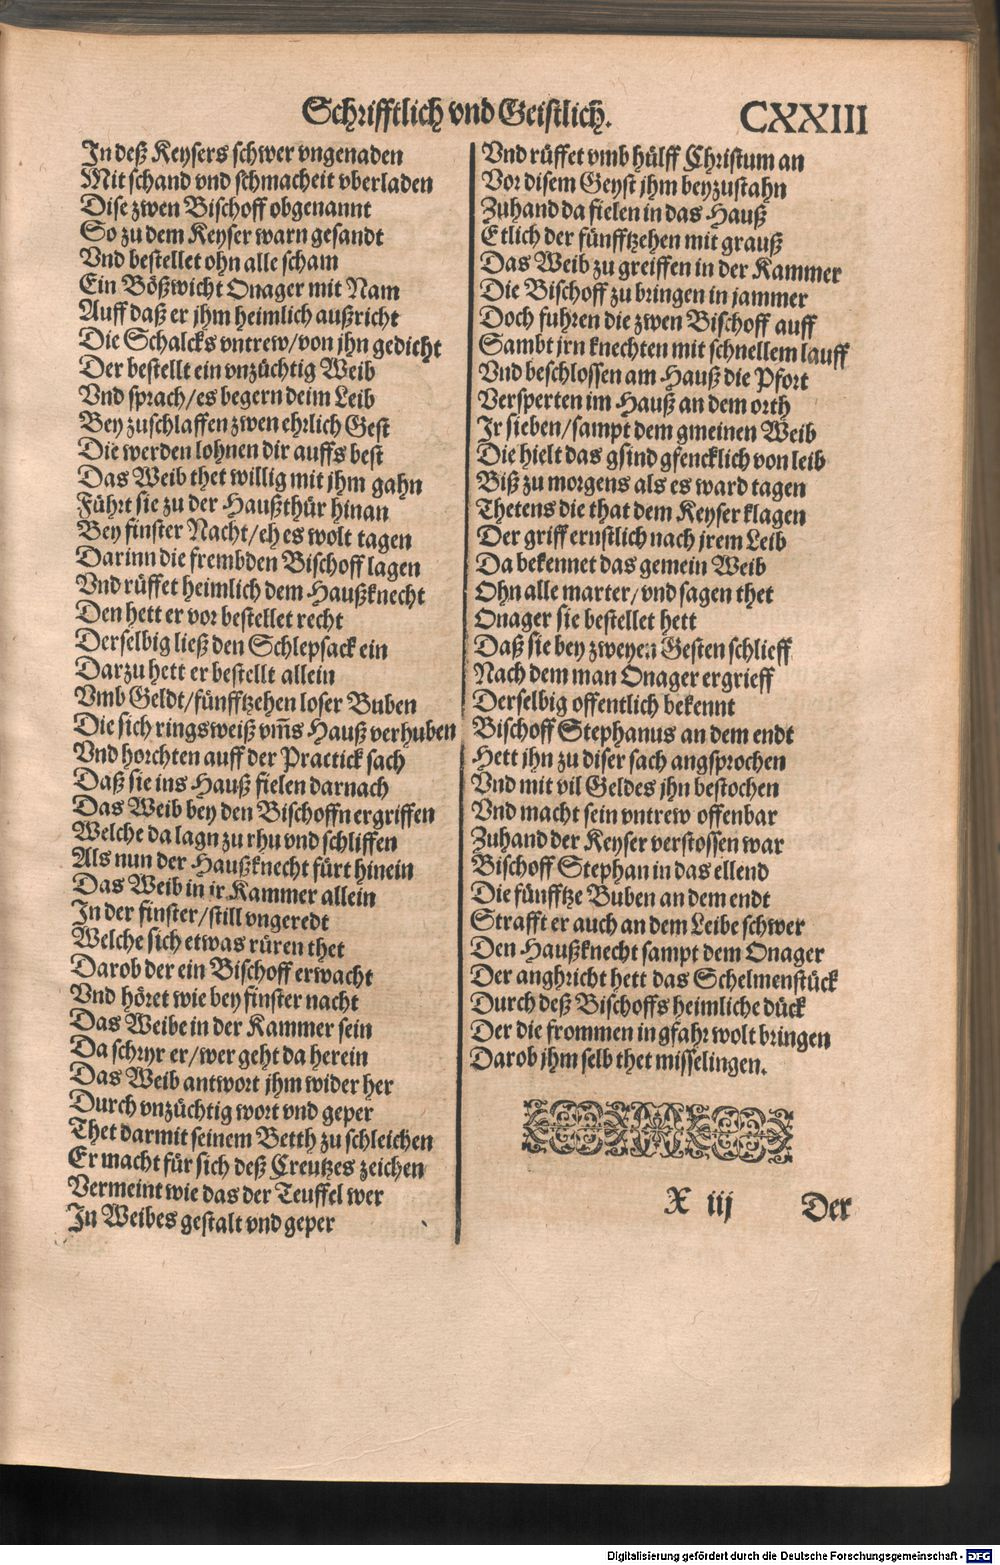 Schrifftlich vnd Geistlich.
CXXIII
In deß Keysers schwer vngenaden
Mit schand vnd schmacheit vberladen
Dise zwen Bischoff obgenannt
So zu dem Keyser warn gesandt
Vnd bestellet ohn alle scham
Ein Bößwicht Onager mit Nam
Auff daß er jhm heimlich außricht
Die Schalcks vntrew/von jhn gedicht
Der bestellt ein vnzüchtig Weib
Vnd sprach/es begern deim Leib
Bey zuschlaffen zwen ehrlich Gest
Die werden lohnen dir auffs best
Das Weib thet willig mit jhm gahn
Führt sie zu der Haußthür hinan
Bey finster Nacht/eh es wolt tagen
Darinn die frembden Bischoff lagen
Vnd rüffet heimlich dem Haußknecht
Den hett er vor bestellet recht
Derselbig ließ den Schlepsack ein
Darzu hett er bestellt allein
Vmb Geldt/fünfftzehen loser Buben
Die sich ringsweiß vm̃s Hauß verhuben
Vnd horchten auff der Practick sach
Daß sie ins Hauß fielen darnach
Das Weib bey den Bischoffn ergriffen
Welche da lagn zu rhu vnd schliffen
Als nun der Haußknecht fürt hinein
Das Weib in ir Kammer allein
In der finster/still vngeredt
Welche sich etwas rüren thet
Darob der ein Bischoff erwacht
Vnd höret wie bey finster nacht
Das Weibe in der Kammer sein
Da schryr er/wer geht da herein
Das Weib antwort jhm wider her
Durch vnzüchtig wort vnd geper
Thet darmit seinem Betth zu schleichen
Er macht für sich deß Creutzes zeichen
Vermeint wie das der Teuffel wer
In Weibes gestalt vnd geper
Vnd rüffet vmb hülff Christum an
Vor disem Geyst jhm beyzustahn
Zuhand da fielen in das Hauß
Etlich der fünfftzehen mit grauß
Das Weib zu greiffen in der Kammer
Die Bischoff zu bringen in jammer
Doch fuhren die zwen Bischoff auff
Sambt jrn knechten mit schnellem lauff
Vnd beschlossen am Hauß die Pfort
Versperten im Hauß an dem orth
Jr sieben/sampt dem gmeinen Weib
Die hielt das gsind gfencklich von leib
Biß zu morgens als es ward tagen
Thetens die that dem Keyser klagen
Der griff ernstlich nach jrem Leib
Da bekennet das gemein Weib
Ohn alle marter/vnd sagen thet
Onager sie bestellet hett
Daß sie bey zweyen Gesten schlieff
Nach dem man Onager ergrieff
Derselbig offentlich bekennt
Bischoff Stephanus an dem endt
Hett jhn zu diser sach angsprochen
Vnd mit vil Geldes jhn bestochen
Vnd macht sein vntrew offenbar
Zuhand der Keyser verstossen war
Bischoff Stephan in das ellend
Die fünfftze Buben an dem endt
Strafft er auch an dem Leibe schwer
Den Haußknecht sampt dem Onager
Der anghricht hett das Schelmenstück
Durch deß Bischoffs heimliche dück
Der die frommen in gfahr wolt bringen
Darob jhm selb thet misselingen.
X iij
Der
Digitalisierung gefördert durch die Deutsche Forschungsgemeinschaft - DFG